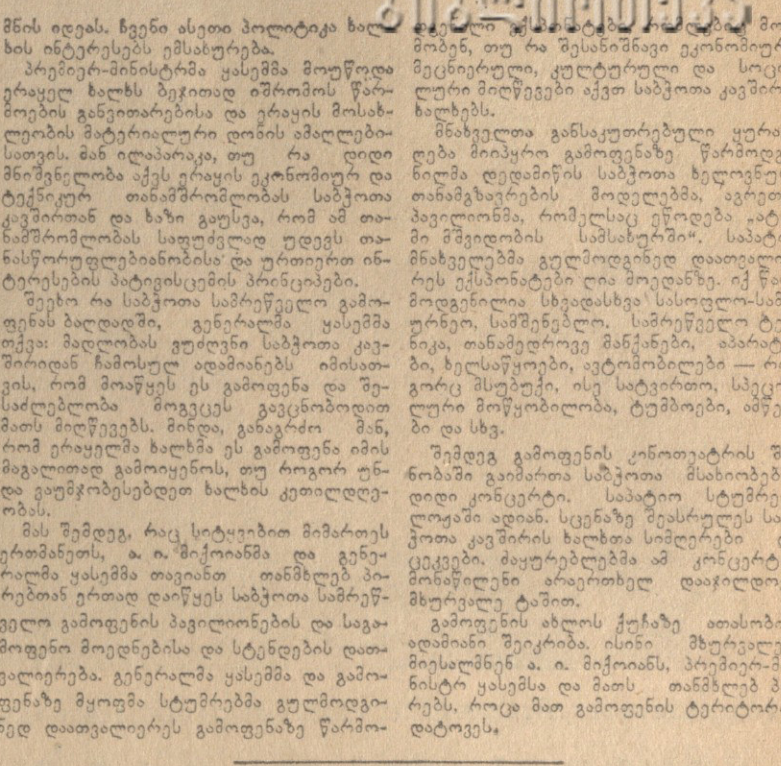 მნის იდეას. ჩვენი ასეთი პოლიტიკა ხალ-
ხის ინტერესებს ემსახურება.
პრემიერ-მინისტრმა ყასემმა მოუწოდა
ერაყელ ხალხს ბეჯითად იშრომოს წარ-
მოების განვითარებისა და ერაყის მოსახ-
ლეობის მატერიალური დონის ამაღლები-
სათვის. მან ილაპარაკა, თუ რა დიდი
მნიშვნელობა აქვს ერაყის ეკონომიურ და
ტექნიკურ თანამშრომლობას საბჭოთა
კავშირთან და ხაზი გაუსვა, რომ ამ თა-
ნამშრომლობას საფუძვლად უდევს თა-
ნასწორუფლებიანობისა და ურთიერთ ინ-
ტერესების პატივისცემის პრინციპები.
შეეხო რა საბჭოთა სამრეწველო გამო-
ფენას ბაღდადში, გენერალმა ყასემმა
თქვა: მადლობას ვუძღვნი საბჭოთა კავ-
შირიდან ჩამოსულ ადამიანებს იმისათ-
ვის, რომ მოაწყეს ეს გამოფენა და შე-
საძლებლობა მოგვცეს გავცნობოდით
მათს მიღწევებს. მინდა, განაგრძო მან,
რომ ერაყელმა ხალხმა ეს გამოფენა იმის
მაგალითად გამოიყენოს, თუ როგორ უნ-
და ვაუმჯობესებდეთ ხალხის კეთილდღე-
ობას.
მას შემდეგ, რაც სიტყვებით მიმართეს
ერთმანეთს, ა. ი. მიქოიანმა და გენე-
რალმა ყასემმა თავიანთ თანმხლებ პი-
რებთან ერთად დაიწყეს საბჭოთა სამრეწ-
ველო გამოფენის პავილიონების და საგა-
მოფენო მოედნებისა და სტენდების დათ-
ვალიერება. გენერალმა ყასემმა და გამო-
ფენაზე მყოფმა სტუმრებმა გულმოდგი-
ნედ დაათვალიერეს გამოფენაზე წარმო-
ექსპონატები, რომლებიც მო
მობენ, თუ რა შესანიშნავი ეკონომიურ
მეცნიერული, კულტურული და სოცი
ლური მიღწევები აქვთ საბჭოთა კავშირ
ხალხებს.
მნახველთა განსაკუთრებული ყურა
ღება მიიპყრო გამოფენაზე წარმოდგ
ნილმა დედამიწის საბჭოთა ხელოვნურ
თანამგზავრების მოდელებმა, აგრეთ
პავილიონმა, რომელსაც ეწოდება „ატ
მი მშვიდობის სამსახურში“. საპატი
მნახველებმა გულმოდგინედ დაათვალი
რეს ექსპონატები ღია მოედანზე. იქ წა
მოდგენილია სხვადასხვა სასოფლო-სა
ურნეო, სამშენებლო. სამრეწველო ტ
ნიკა, თანამედროვე მანქანები, აპარატ
ბი, ხელსაწყოები, ავტომობილები — რ
გორც მსუბუქი, ისე სატვირთო, სპეც
ლური მოწყობილობა, ტუმბოები, ამწე
ბი და სხვ.
შემდეგ გამოფენის კინოთეატრის შ
ნობაში გაიმართა საბჭოთა მსახიობებ
დიდი კონცერტი. საპატიო სტუმრე
ლოჟაში ადიან. სცენაზე შეასრულეს სა
ჭოთა კავშირის ხალხთა სიმღერები
ცეკვები. მაყურებლებმა ამ კონცერტ
მონაწილენი არაერთხელ დააჯილდო
მხურვალე ტაშით.
გამოფენის ახლოს ქუჩაზე ათასობი
ადამიანი შეიკრიბა. ისინი მხურვალე
მიესალმნენ ა. ი. მიქოიანს, პრემიერ-მ
ნისტრ ყასემსა და მათს თანმხლებ პ
რებს, როცა მათ გამოფენის ტერიტორ
დატოვეს.